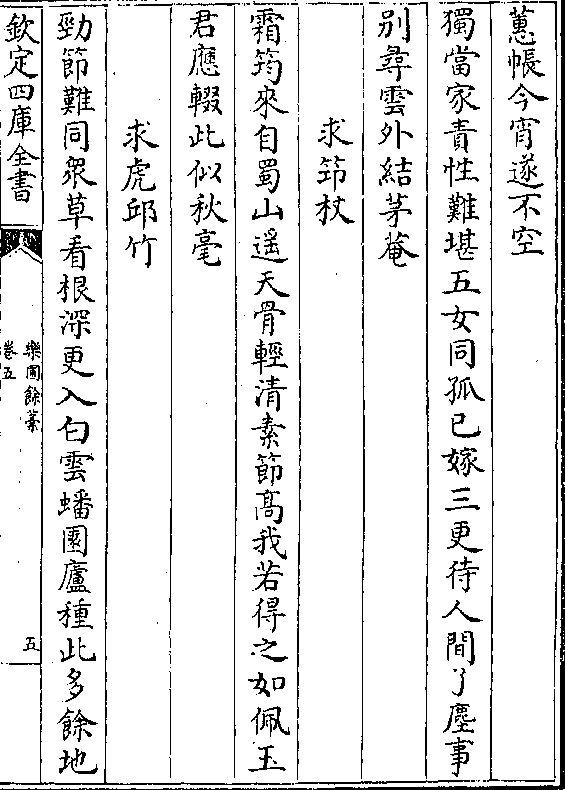 蕙帳今宵遂不空
獨當家責性難堪五女同孤已嫁三更待人間了塵事
别尋雲外結茅菴
求笻杖
霜筠來自蜀山遥天骨輕清素節髙我若得之如佩玉
君應輟此似秋毫
求虎邱竹
勁節難同衆草看根深更入白雲蟠園廬種此多餘地
欽定四庫全書
樂圃餘藁
卷五
五